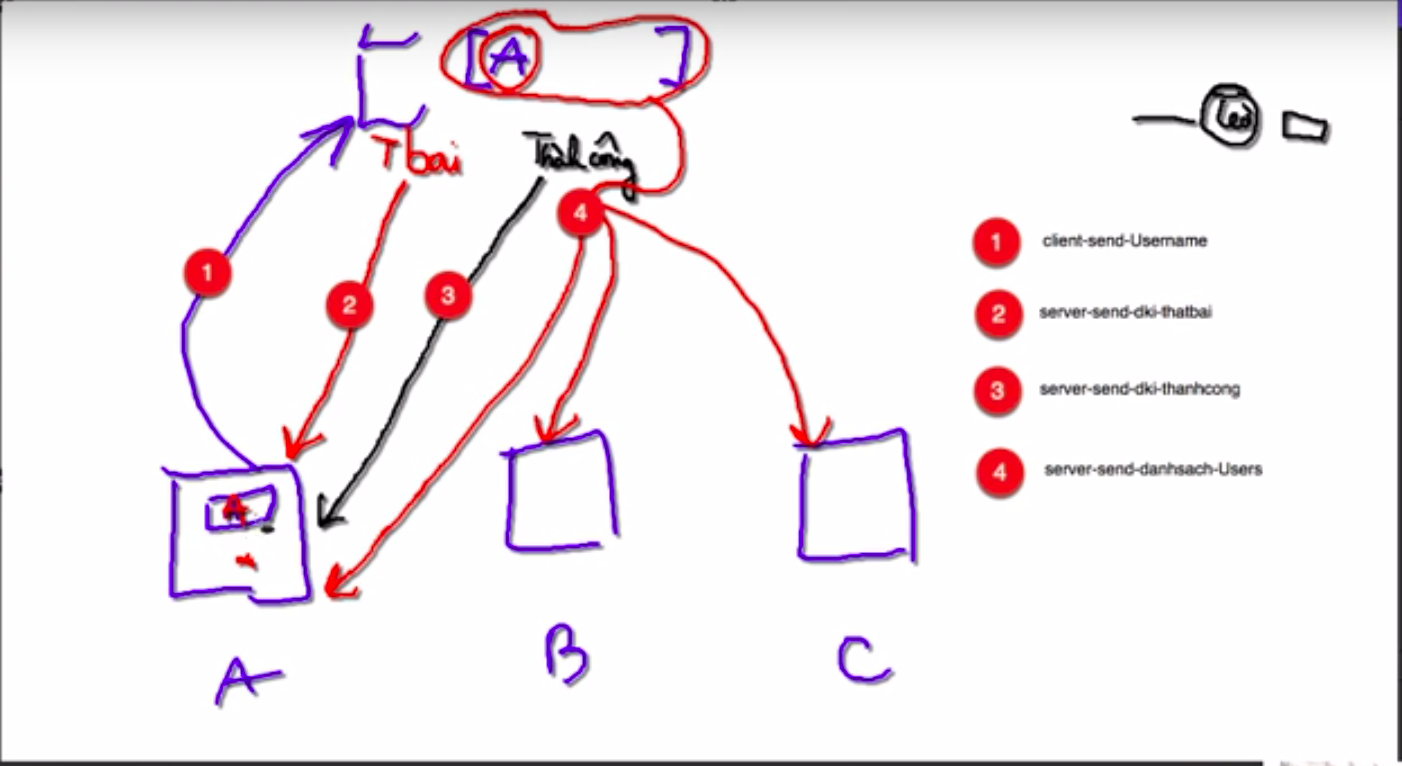 [A]
T bai
Thành công
4
1
2
3
A
A
B
C
Teo
1 client-send-Username
2 server-send-dki-thatbai
3 server-send-dki-thanhcong
4 server-send-danhsach-Users